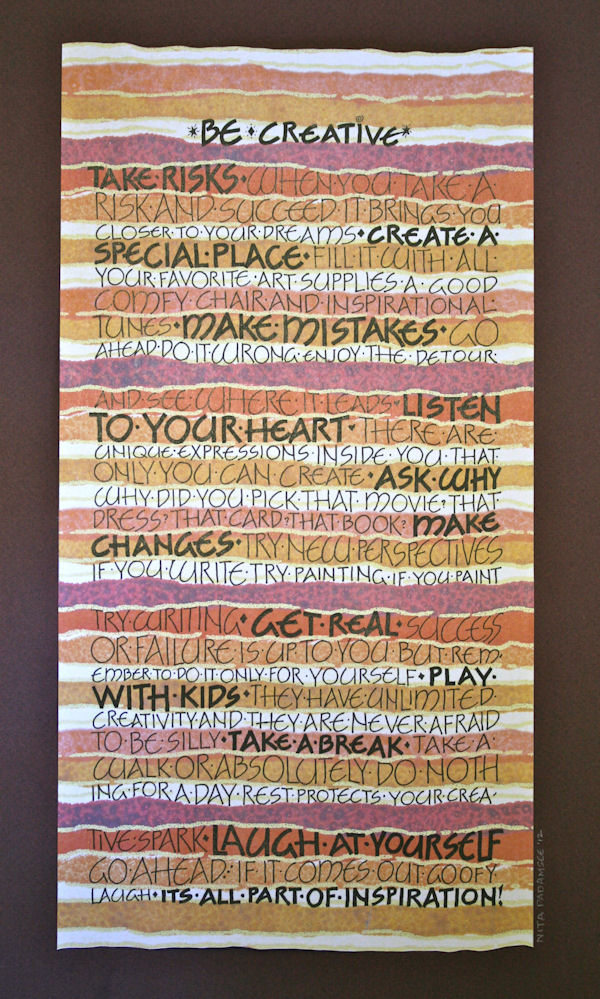 *BE•CREATIVE*
TAKE•RISKS•WHEN•YOU•TAKE•A•
RISK•AND•SUCCEED•IT•BRINGS•YOU
CLOSER•TO•YOUR•DREAMS•CREATE•A•
SPECIAL•PLACE•FILL•IT•WITH•ALL
YOUR•FAVORITE•ART•SUPPLIES•A•GOOD
COMFY•CHAIR•AND•INSPIRATIONAL•
TUNES•MAKE•MISTAKES•GO
AHEAD•DO•IT•WRONG•ENJOY•THE•DETOUR•
AND•SEE•WHERE•IT•LEADS•LISTEN
TO•YOUR•HEART•THERE•ARE•
UNIQUE•EXPRESSIONS•INSIDE•YOU•THAT
ONLY•YOU•CAN•CREATE•ASK•WHY
WHY•DID•YOU•PICK•THAT•MOVIE?•THAT
DRESS?•THAT•CARD?•THAT•BOOK?•MAKE
CHANGES•TRY•NEW•PERSPECTIVES
IF•YOU•WRITE•TRY•PAINTING•IF•YOU•PAINT
TRY•WRITING•GET•REAL•SUCCESS
OR•FAILURE•IS•UP•TO•YOU•BUT•REM-
EMBER•TO•DO•IT•ONLY•FOR•YOURSELF•PLAY•
WITH•KIDS•THEY•HAVE•UNLIMITED•
CREATIVITY•AND•THEY•ARE•NEVER•AFRAID
TO•BE•SILLY•TAKE•A•BREAK•TAKE•A•
WALK•OR•ABSOLUTELY•DO•NOTH
ING•FOR•A•DAY•REST•PROTECTS•YOUR•CREA-
TIVE•SPARK•LAUGH•AT•YOURSELF
GO•AHEAD•IF•IT•COMES•OUT•GOOFY
LAUGH•ITS•ALL•PART•OF•INSPIRATION!
NITA PADAMSEE '12